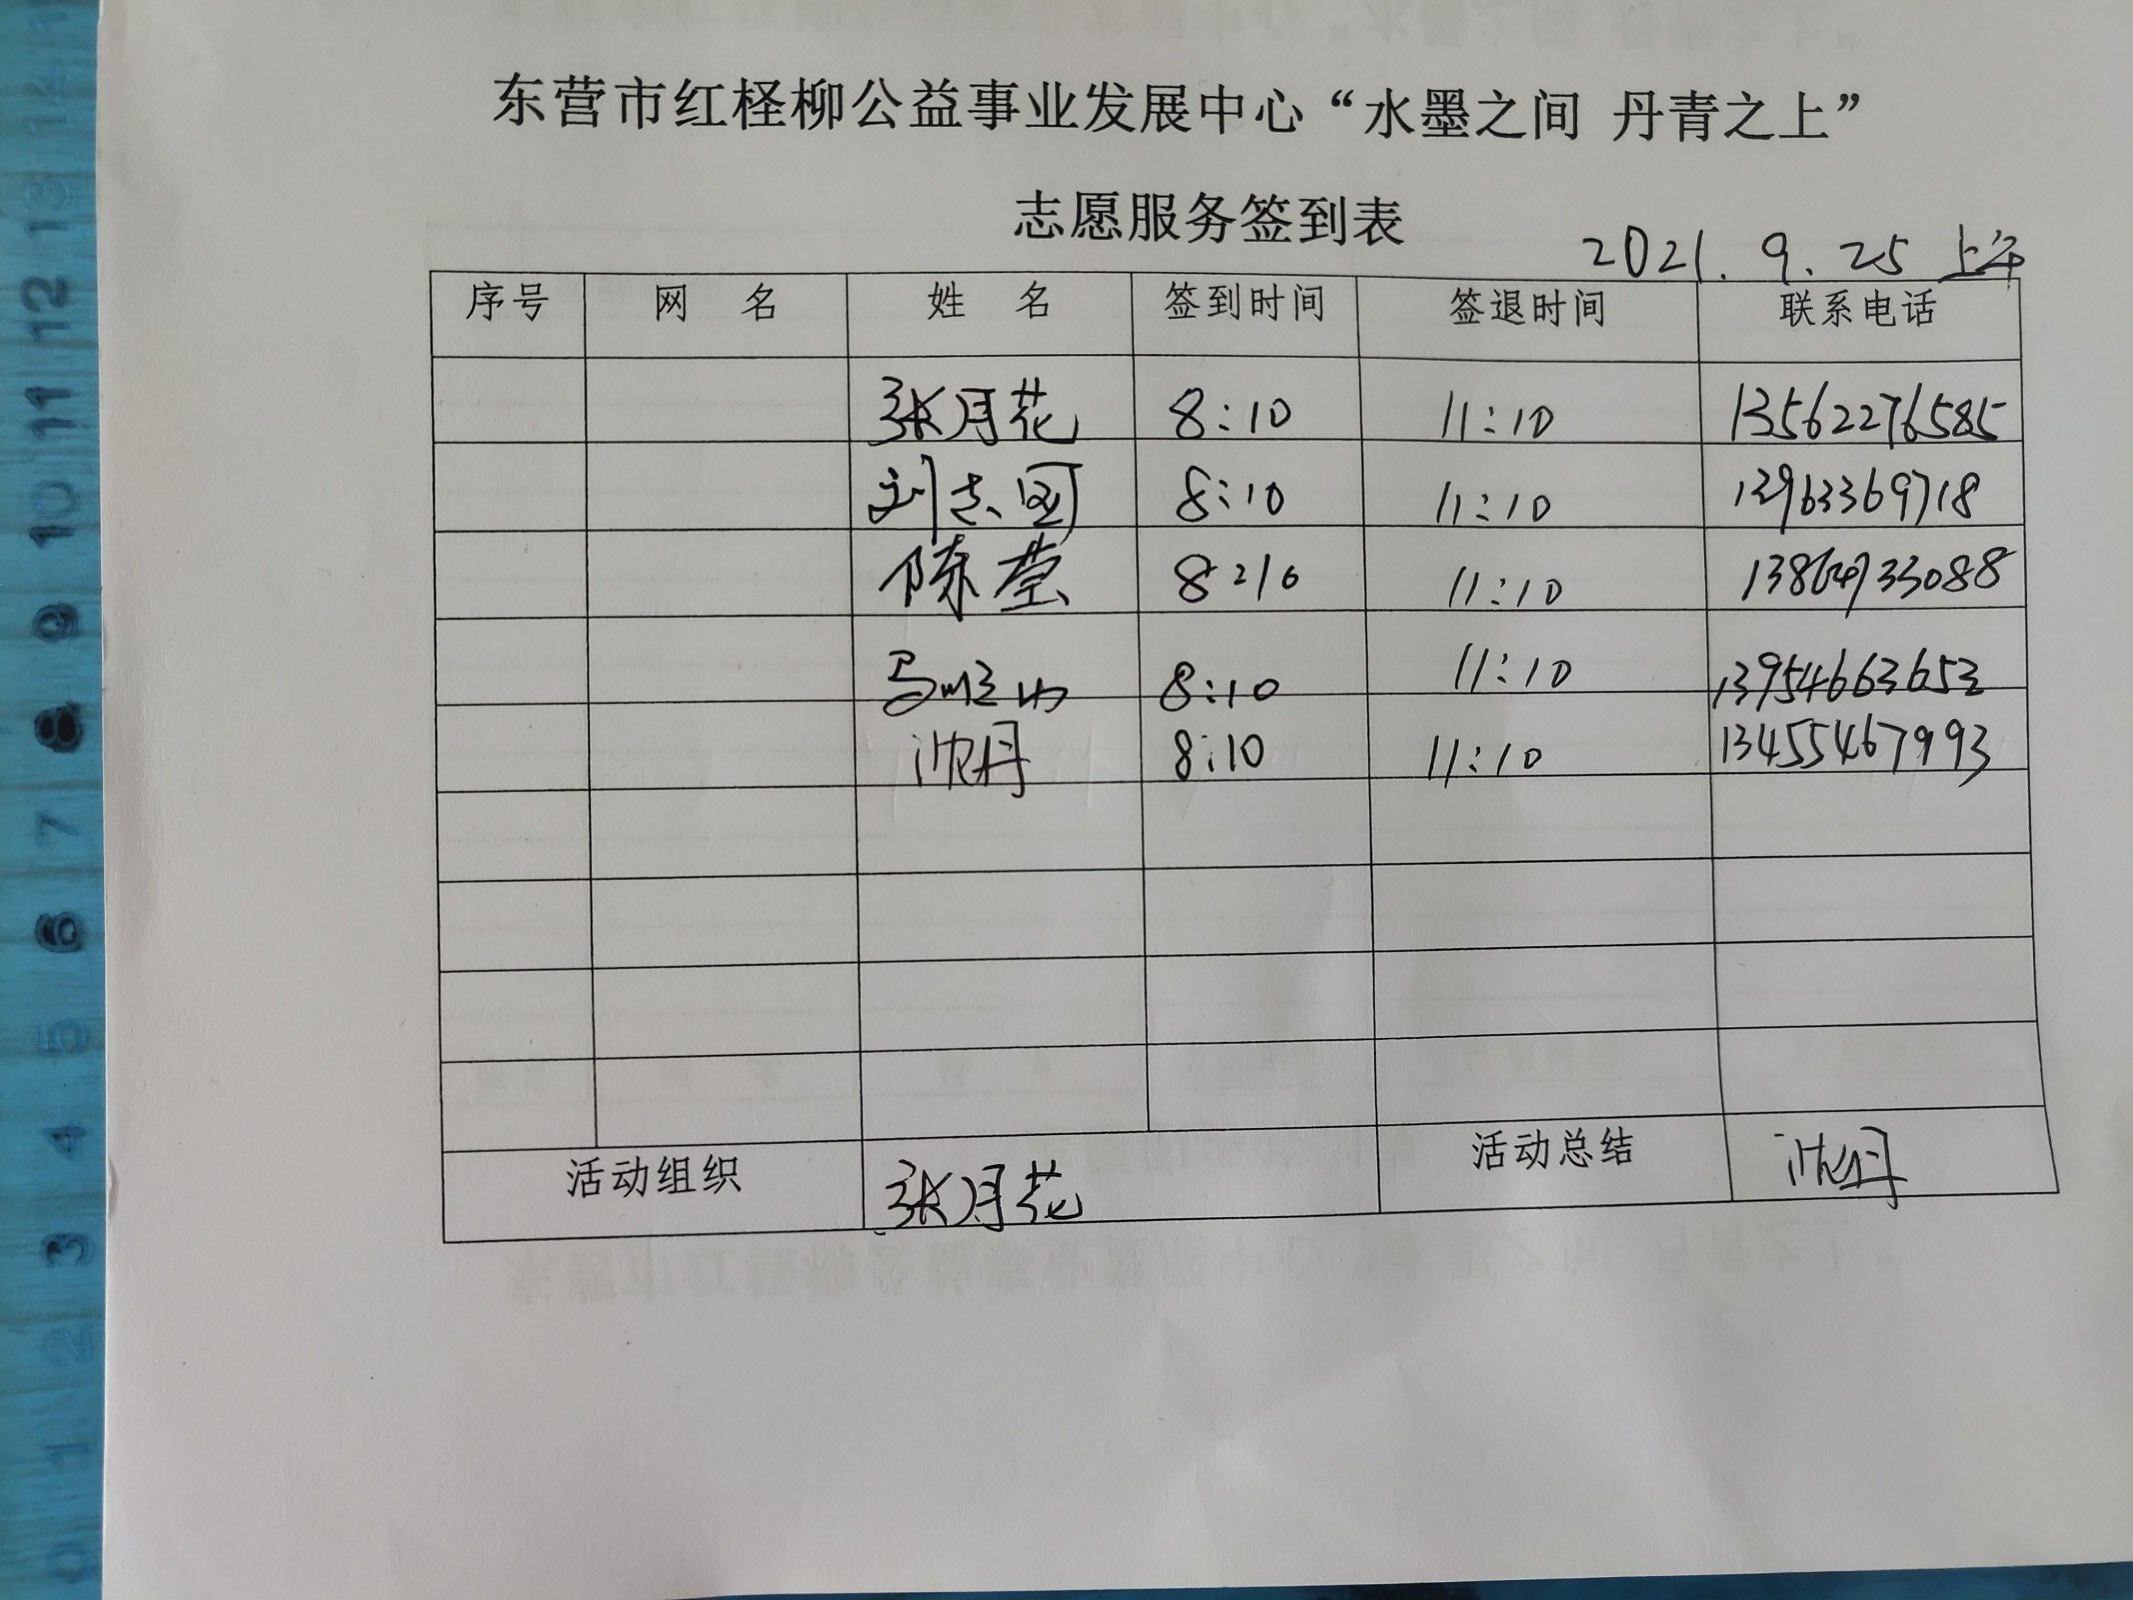 东营市红柽柳公益事业发展中心“水墨之间 丹青之上”
志愿服务签到表
2021.9.25 上午
序号 网 名 姓 名 签到时间 签退时间 联系电话
张月花 8:10 11:10 13562276585
刘志国 8:10 11:10 13963369718
陈莹 8:10 11:10 13864733088
马 8:10 11:10 13954663653
沈丹 8:10 11:10 13455467993
活动组织 张月花 活动总结 沈丹
13
12
11
10
9
8
7
6
5
4
3
2
1
0